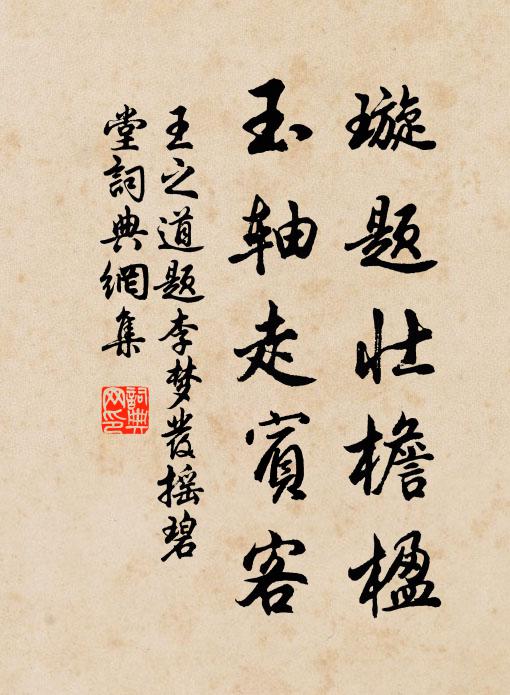 璇题壮檐楹
玉轴走宾客
王之道题李梦发摇碧
堂词典網集
詞典网印